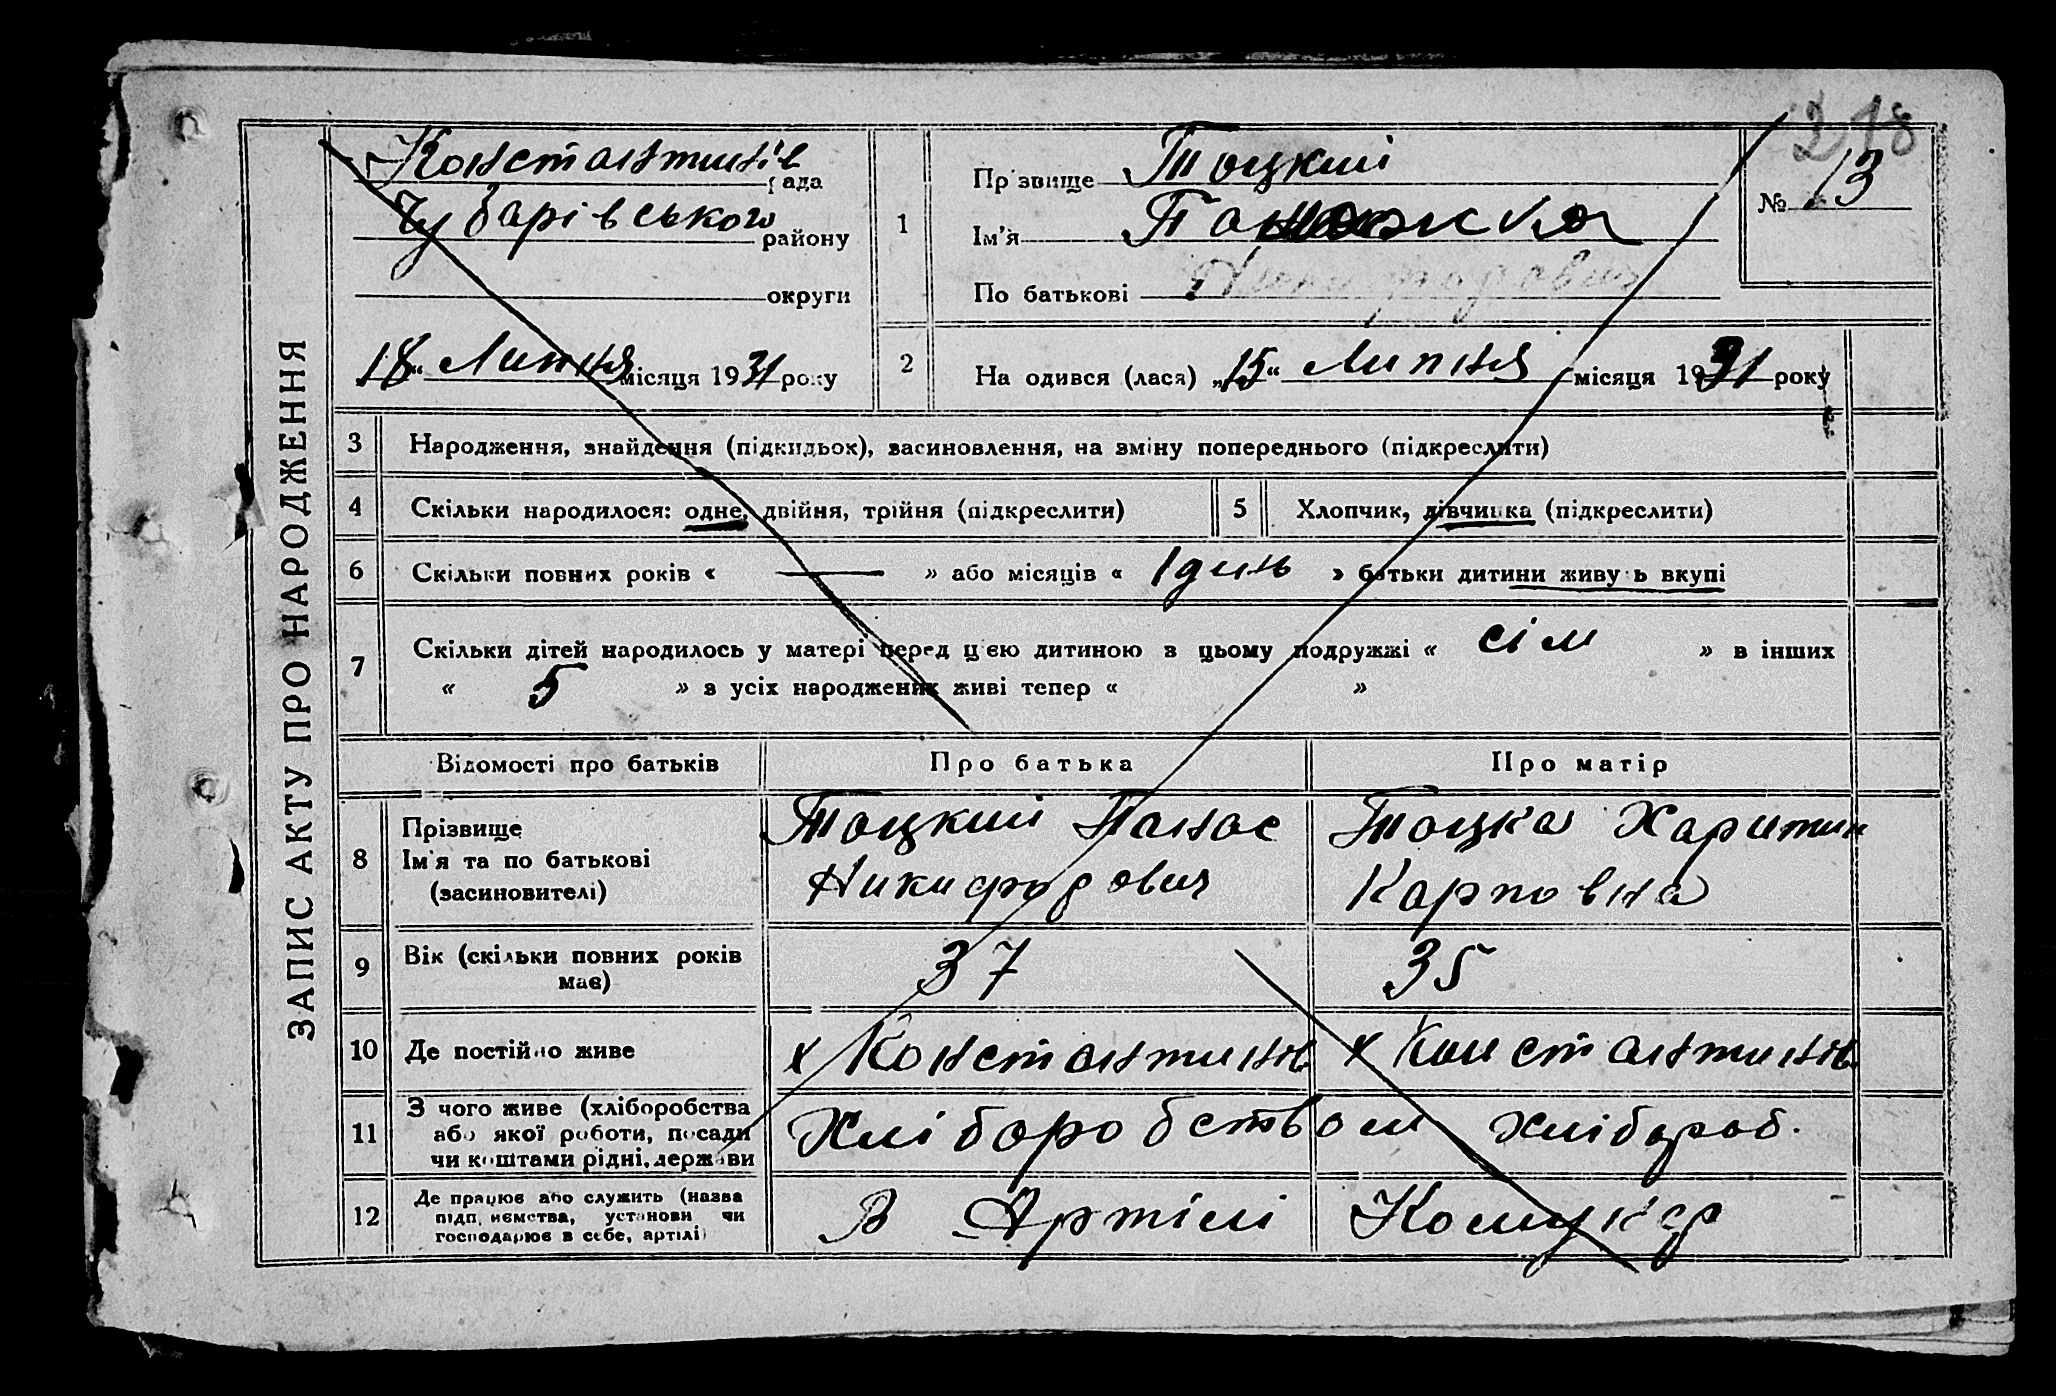 ЗАПИС АКТУ ПРО НАРОДЖЕННЯ
218
Константинів рада
Чубарівського району
округи
18 “ Липня місяця 1931 року
1
Прізвище Тоцкий
Ім'я
По батькові Никифорович
№ 13
2
На одився (лася) „15“ Липня місяця 1931 року
3 Народження, знайдення (підкидьох), засиновлення, на зміну попереднього (підкреслити)
4 Скільки народилося: одне, двійня, трійня (підкреслити)
5 Хлопчик, дівчинка (підкреслити)
6 Скільки повних років « — » або місяців « 1 динь » батьки дитини живуть вкупі
7 Скільки дітей народилось у матері перед цією дитиною в цьому подружжі « сім » в інших
« 5 » з усіх народжених живі тепер « »
Відомості про батьків Про батька Про матір
8 Прізвище
Ім'я та по батькові
(засиновителі)
Тоцкий Панас
Никифорович
Тоцка Харитин
Карповна
9 Вік (скільки повних років
має)
37
35
10 Де постійно живе
х Константинів
х Константинів
11 З чого живе (хліборобства
або якої роботи, посади
чи коштами рідні, держави
Хліборобством
хлібороб.
12 Де працює або служить (назва
підприємства, установи чи
господарює в себе, артілі)
В Артілі